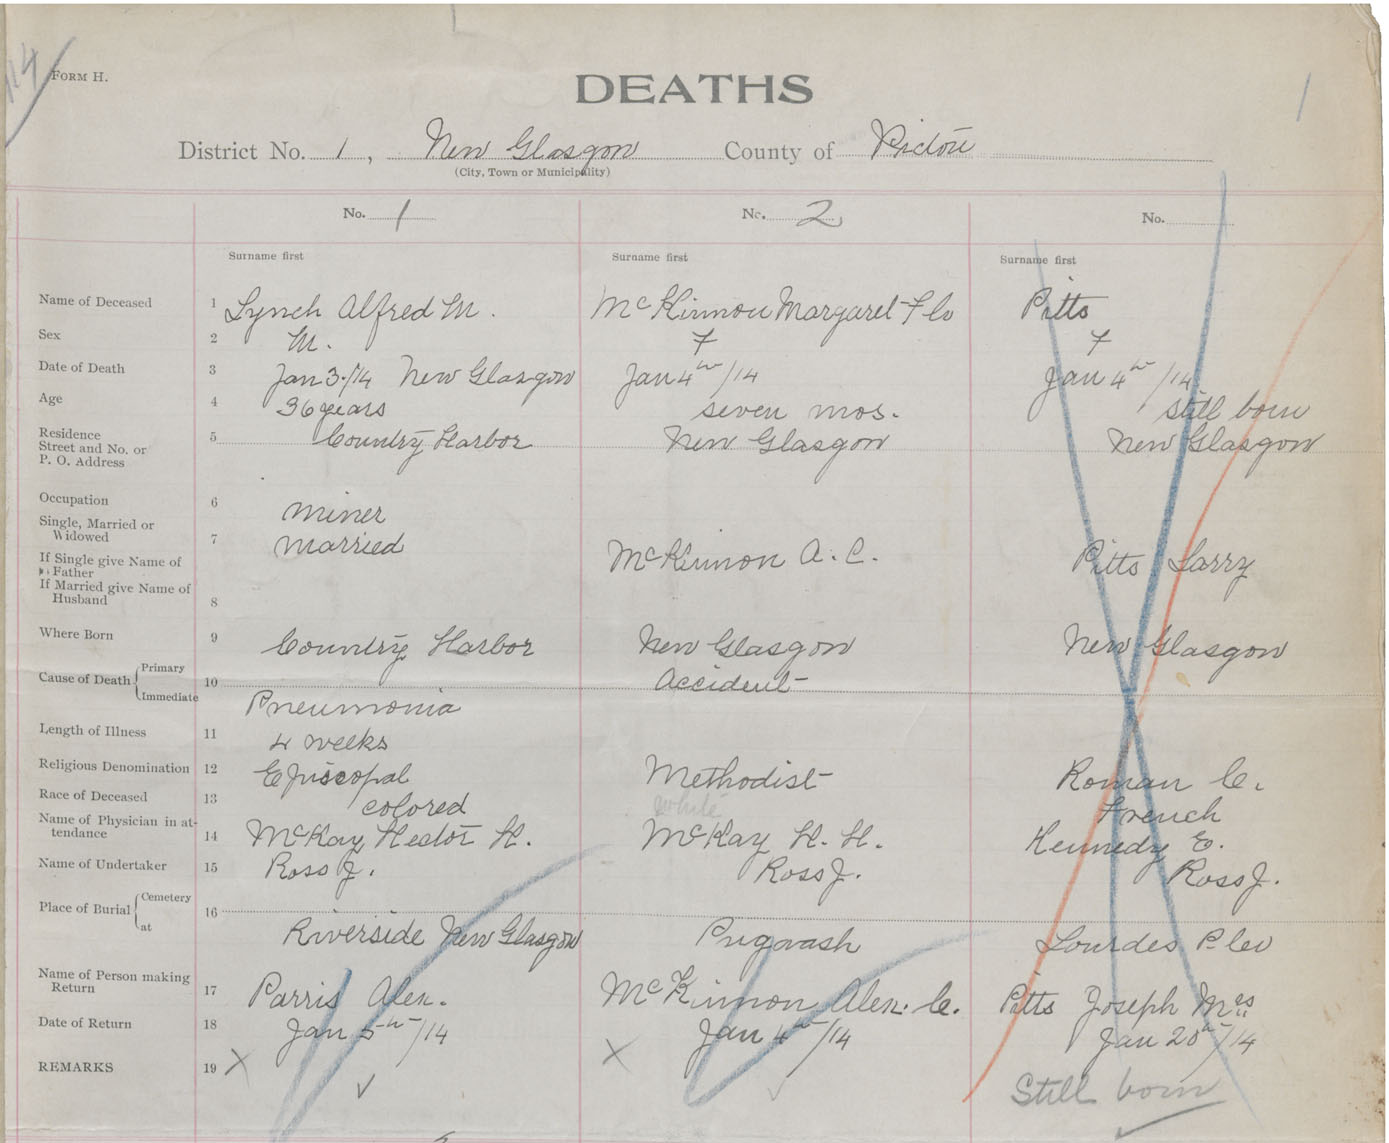 14
FORM H.
DEATHS
1
District No. 1, New Glasgow County of Pictou
(City, Town or Municipality)
No. 1 No. 2 No.
Surname first Surname first Surname first
Name of Deceased 1 Lynch Alfred M. McKinnon Margaret Flo Pitts
Sex 2 M. F F
Date of Death 3 Jan 3./14 New Glasgow Jan 4th/14 Jan 4th/14
Age 4 36 years seven mos. still born
Residence
Street and No. or
P. O. Address 5 Country Harbor New Glasgow New Glasgow
Occupation 6 miner
Single, Married or
Widowed 7 married
If Single give Name of
Father McKinnon A. C. Pitts Larry
If Married give Name of
Husband 8
Where Born 9 Country Harbor New Glasgow New Glasgow
Cause of Death Primary 10 Accident
Immediate Pneumonia
Length of Illness 11 4 weeks
Religious Denomination 12 Episcopal Methodist Roman C.
Race of Deceased 13 colored white French
Name of Physician in at-
tendance 14 McKay Hector H. McKay H. H. Kennedy E.
Name of Undertaker 15 Ross J. Ross J. Ross J.
Place of Burial Cemetery 16
at Riverside New Glasgow Pugwash Lourdes
Name of Person making
Return 17 Parris Alex. McKinnon Alex. C. Pitts Joseph Mrs
Date of Return 18 Jan 5th/14 Jan 4th/14 Jan 20th/14
REMARKS 19 X X Still born